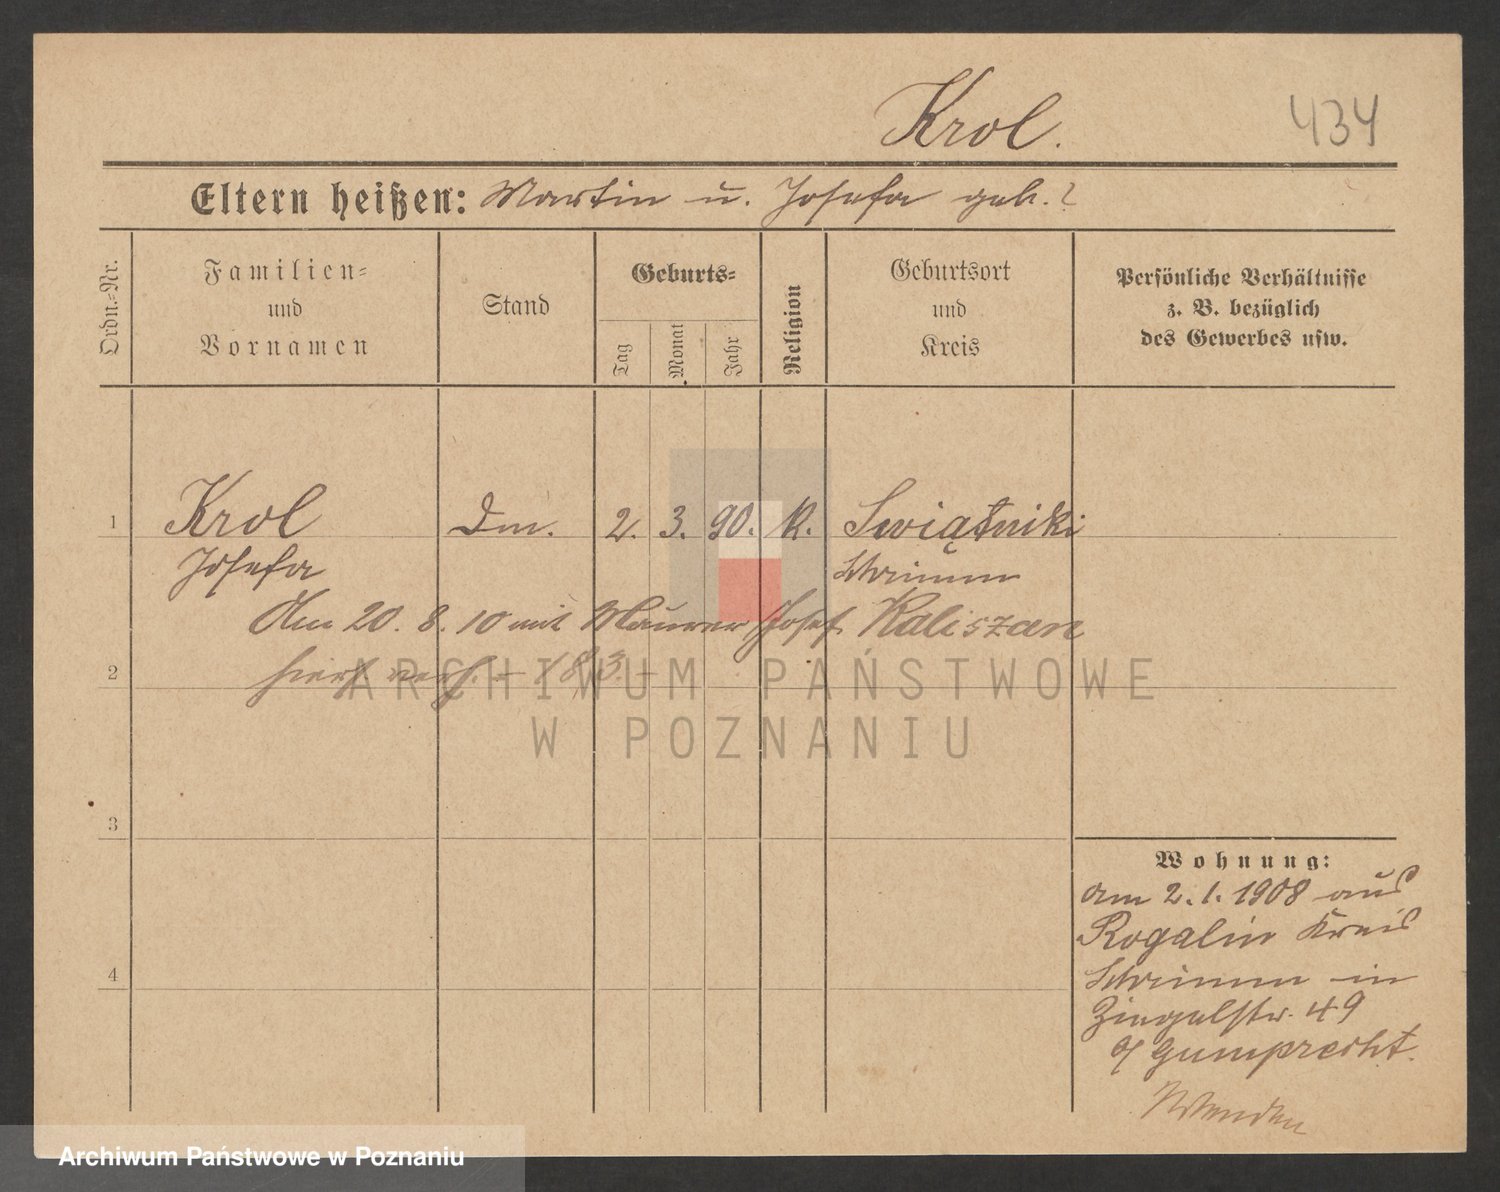 Krol.
434
Eltern heißen: Martin u. Josefa geb. ?
Ordn.=Nr.
Familien=
und
Vornamen
Stand
Geburts=
Tag
Monat
Jahr
Religion
Geburtsort
und
Kreis
Persönliche Verhältnisse
z. B. bezüglich
des Gewerbes usw.
1
Krol Dm. 2. 3. 90. k. Swiątniki
Josefa Schrimm
Am 20. 8. 10 mit Maurer Josef Kaliszan
2
hier verh.
ARCHIWUM PAŃSTWOWE
W POZNANIU
3
4
Wohnung:
am 2. 1. 1908 aus
Rogalin Kreis
Schrimm in
Ziegelstr. 49
b/ Gumprecht.
Wenden
Archiwum Państwowe w Poznaniu